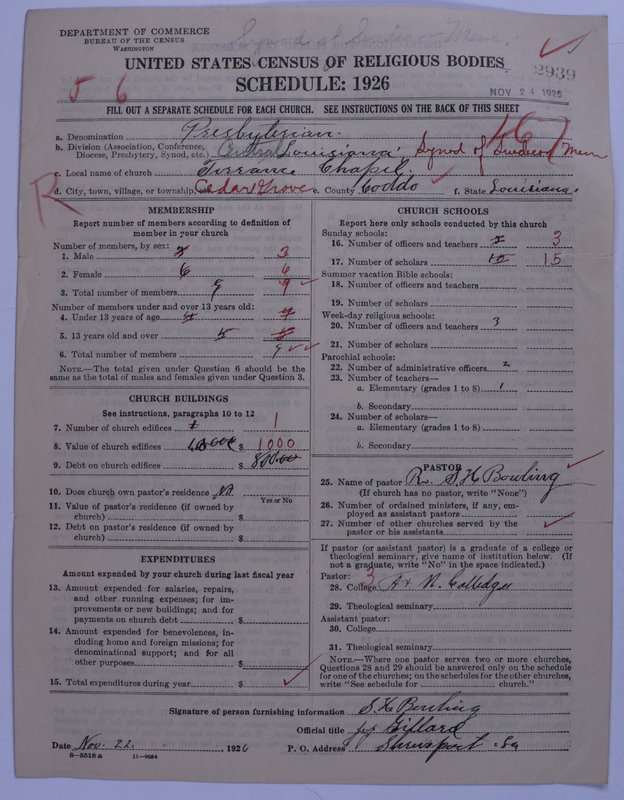 DEPARTMENT OF COMMERCE
BUREAU OF THE CENSUS
WASHINGTON
UNITED STATES CENSUS OF RELIGIOUS BODIES
SCHEDULE: 1926
2939
NOV 24 1926
5 6
FILL OUT A SEPARATE SCHEDULE FOR EACH CHURCH. SEE INSTRUCTIONS ON THE BACK OF THIS SHEET
a. Denomination Presbyterian
467
b. Division (Association, Conference, Diocese, Presbytery, Synod, etc.) Central Louisiana Synod of
c. Local name of church Chapel
R
d. City, town, village, or township, Cedar Grove e. County Coddo f. State Louisiana
MEMBERSHIP
Report number of members according to definition of
member in your church
Number of members, by sex:
1. Male 3 3
2. Female 6 6
3. Total number of members 9 9
Number of members under and over 13 years old:
4. Under 13 years of age 4 4
5. 13 years old and over 5 5
6. Total number of members 9
NOTE.—The total given under Question 6 should be
same as the total of males and females given under Question 3.
CHURCH BUILDINGS
See instructions, paragraphs 10 to 12
7. Number of church edifices 1 1
8. Value of church edifices $ 1000
9. Debt on church edifices $ 800.00
10. Does church own pastor's residence No
Yes or No
11. Value of pastor's residence (if owned by
church) $
12. Debt on pastor's residence (if owned by
church) $
EXPENDITURES
Amount expended by your church during last fiscal year
13. Amount expended for salaries, repairs,
and other running expenses; for im-
provements or new buildings; and for
payments on church debt $
14. Amount expended for benevolences, in-
cluding home and foreign missions; for
denominational support; and for all
other purposes $
15. Total expenditures during year $
CHURCH SCHOOLS
Report here only schools conducted by this church
Sunday schools:
16. Number of officers and teachers 3
17. Number of scholars 15
Summer vacation Bible schools:
18. Number of officers and teachers
19. Number of scholars
Week-day religious schools:
20. Number of officers and teachers 3
21. Number of scholars
Parochial schools:
22. Number of administrative officers 2
23. Number of teachers—
a. Elementary (grades 1 to 8) 1
b. Secondary
24. Number of scholars—
a. Elementary (grades 1 to 8)
b. Secondary
PASTOR
25. Name of pastor R. S. H. Bowling
(If church has no pastor, write "None")
26. Number of ordained ministers, if any, em-
ployed as assistant pastors
27. Number of other churches served by the
pastor or his assistants
If pastor (or assistant pastor) is a graduate of a college or
theological seminary, give name of institution below. (If
not a graduate, write "No" in the space indicated.)
Pastor: 3
28. College A & N. Colledge
29. Theological seminary
Assistant pastor:
30. College
31. Theological seminary
NOTE.—Where one pastor serves two or more churches,
Questions 28 and 29 should be answered only on the schedule
for one of the churches; on the schedules for the other churches,
write "See schedule for church."
Signature of person furnishing information S. H. Bowling
Official title Gillard
Date Nov. 22, 1926 P. O. Address Shreveport, La
8—5518 a 11—9064